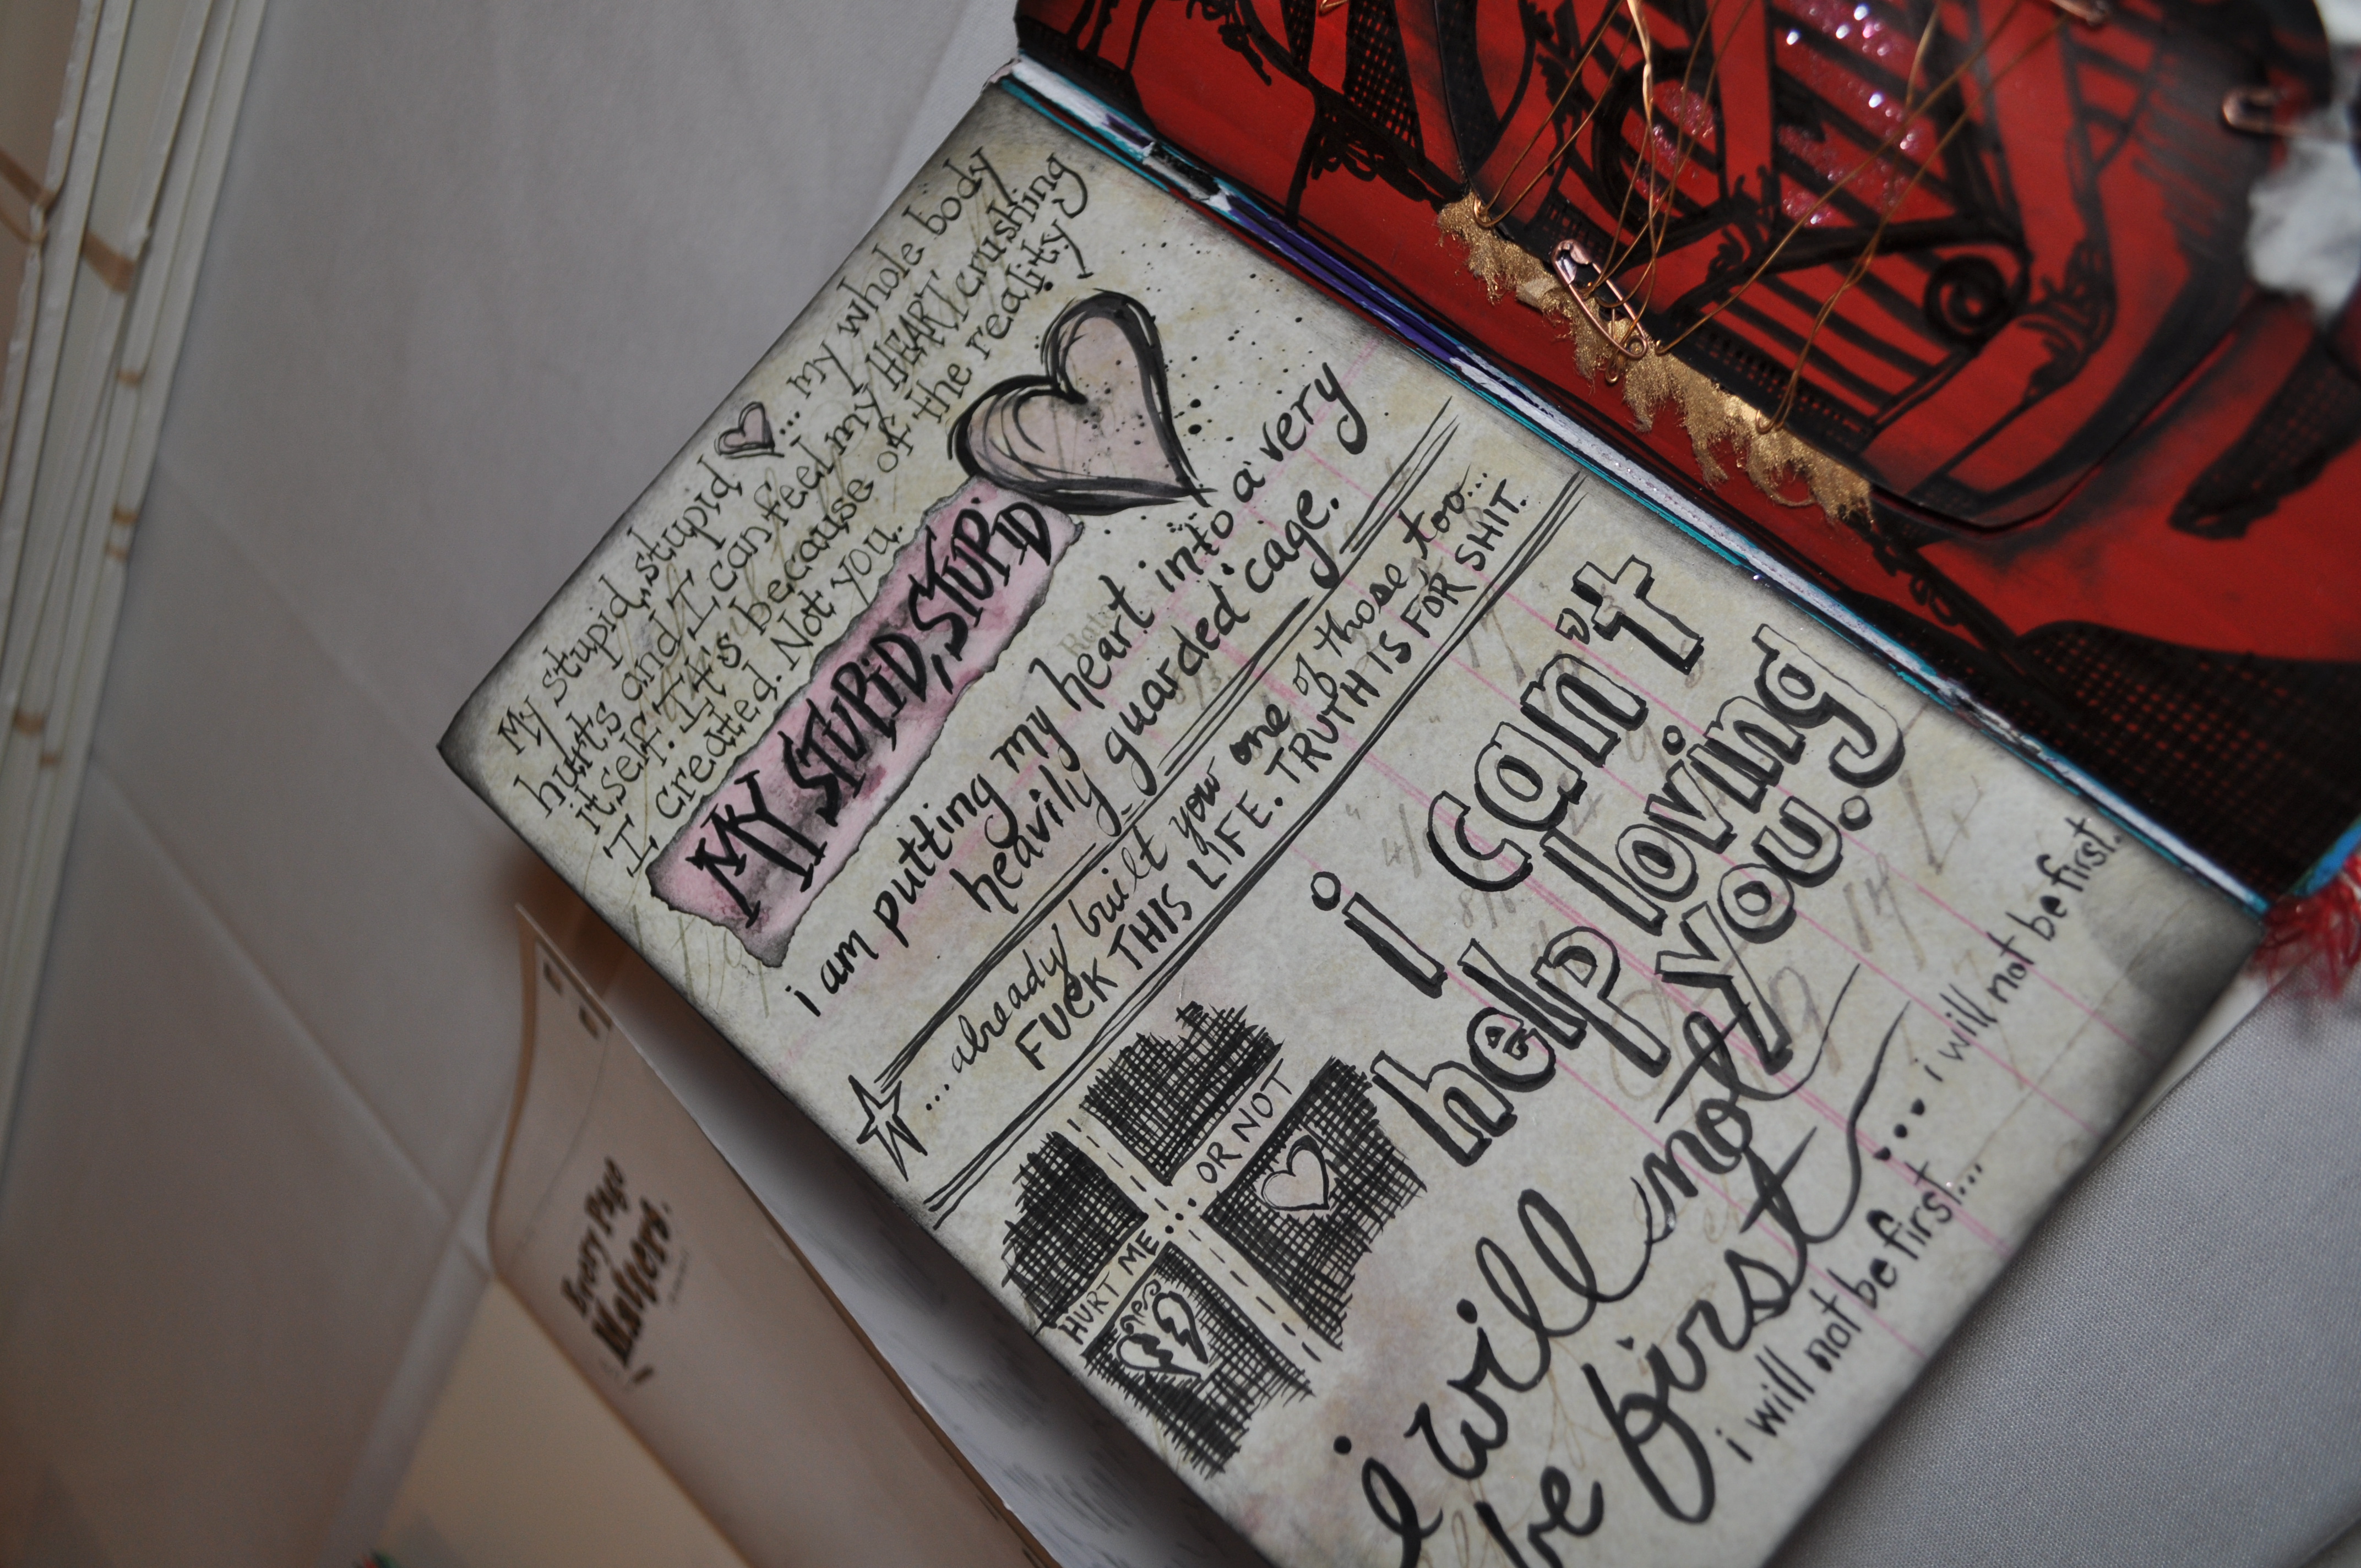 My stupid, stupid, ... my whole body
hurts and I can feel my HEART crushing
itself. It's because of the reality
I created. Not you.
MY STUPID, STUPID
i am putting my heart into a very
heavily guarded cage.
... already built you one of those too...
FUCK THIS LIFE. TRUTH IS FOR SHIT.
HURT ME... OR NOT
i can't
help loving
you.
i will not
be first...
i will not be first...
i will not be first.
Every Page
Matters.